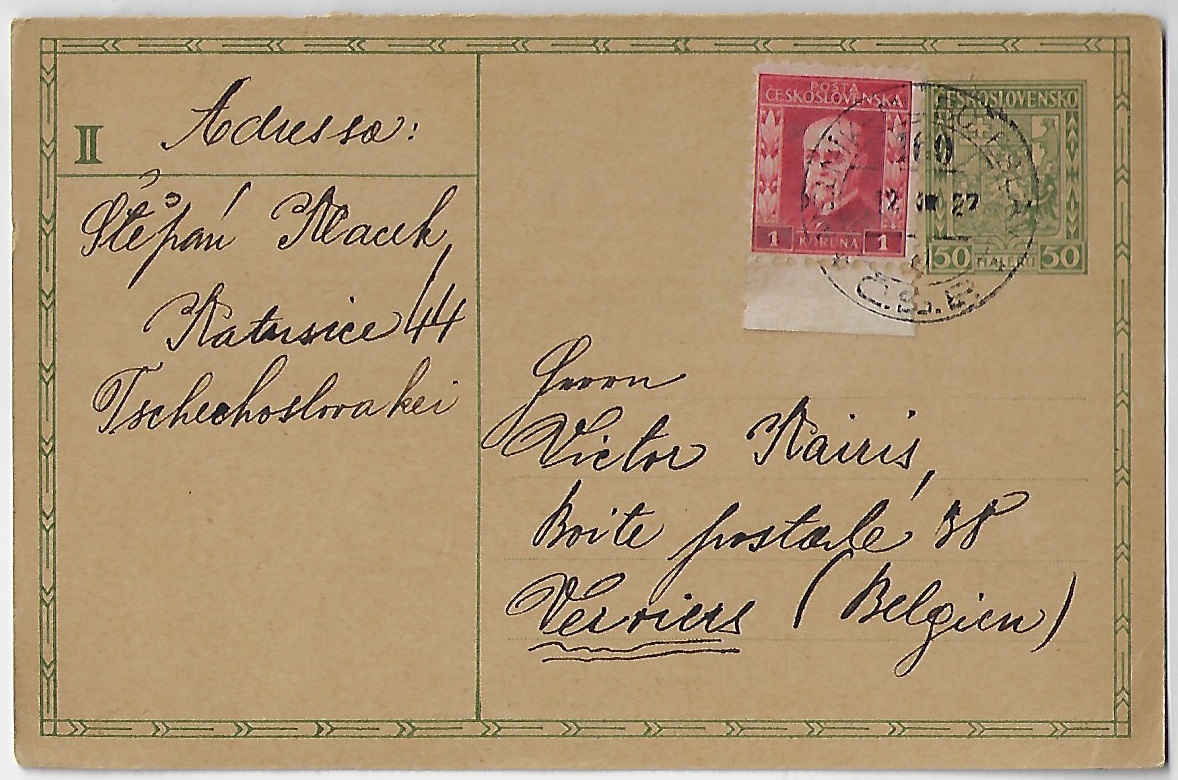 II
Adressa:
Štěpán Klacek,
Katusice 44
Tschechoslovakei
POŠTA
ČESKOSLOVENSKÁ
1 KORUNA 1
ČESKOSLOVENSKO
50 HALÉŘŮ 50
160
12. VIII 27
Č.S.P.
Herrn
Victor Kairis,
Boite postale 38
Verviers (Belgien)